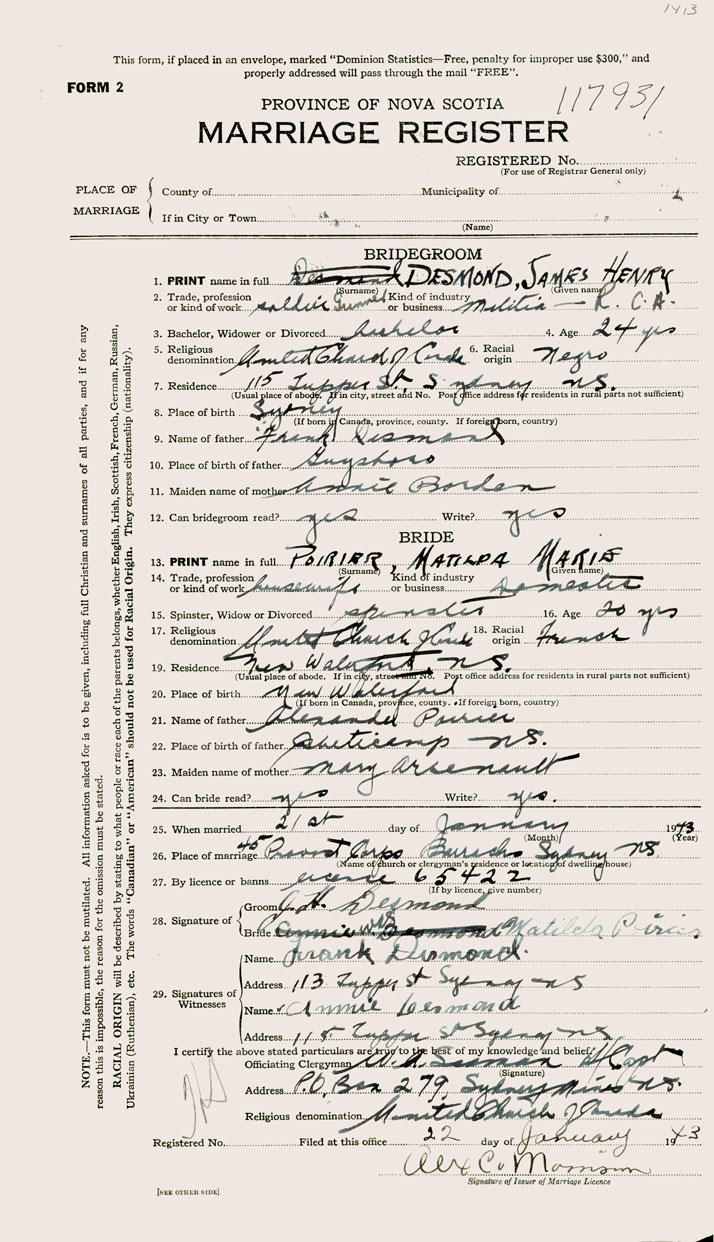 1413
This form, if placed in an envelope, marked "Dominion Statistics—Free, penalty for improper use $300," and
properly addressed will pass through the mail "FREE".
FORM 2
117931
PROVINCE OF NOVA SCOTIA
MARRIAGE REGISTER
REGISTERED No.
(For use of Registrar General only)
PLACE OF MARRIAGE
County of Municipality of
If in City or Town
(Name)
BRIDEGROOM
1. PRINT name in full Desmond DESMOND, JAMES HENRY
(Surname) (Given name)
2. Trade, profession or kind of work soldier Gunner Kind of industry or business Militia — R.C.A.
3. Bachelor, Widower or Divorced Bachelor 4. Age 24 yrs
5. Religious denomination United Church of Canada 6. Racial origin Negro
7. Residence 115 Tupper St. Sydney NS.
(Usual place of abode. If in city, street and No. Post office address for residents in rural parts not sufficient)
8. Place of birth Sydney
(If born in Canada, province, county. If foreign born, country)
9. Name of father Frank Desmond
10. Place of birth of father Guysboro
11. Maiden name of mother Annie Borden
12. Can bridegroom read? yes Write? yes
BRIDE
13. PRINT name in full POIRIER, MATILDA MARIE
(Surname) (Given name)
14. Trade, profession or kind of work housewife Kind of industry or business domestic
15. Spinster, Widow or Divorced spinster 16. Age 20 yrs
17. Religious denomination United Church of Canada 18. Racial origin French
19. Residence New Waterford NS.
(Usual place of abode. If in city, street and No. Post office address for residents in rural parts not sufficient)
20. Place of birth New Waterford
(If born in Canada, province, county. If foreign born, country)
21. Name of father Alexander Poirier
22. Place of birth of father Cheticamp NS.
23. Maiden name of mother Mary Arsenault
24. Can bride read? yes Write? yes.
25. When married 21st day of January 1943
(Month) (Year)
26. Place of marriage Provost Corps Barracks Sydney NS.
(Name of church or clergyman's residence or location of dwelling house)
27. By licence or banns license 65422
(If by licence, give number)
28. Signature of
Groom J.H. Desmond
Bride Annie Desmond Matilda Poirier
29. Signatures of Witnesses
Name Frank Desmond.
Address 113 Tupper St Sydney NS
Name Annie Desmond
Address 115 Tupper St Sydney NS
I certify the above stated particulars are true to the best of my knowledge and belief.
Officiating Clergyman W.A. H/Capt
(Signature)
Address P.O. Box 279, Sydney Mines NS.
Religious denomination United Church of Canada
Registered No. Filed at this office 22 day of January 1943
Alex C. Morrison
Signature of Issuer of Marriage Licence
[SEE OTHER SIDE]
NOTE.—This form must not be mutilated. All information asked for is to be given, including full Christian and surnames of all parties, and if for any
reason this is impossible, the reason for the omission must be stated.
RACIAL ORIGIN will be described by stating to what people or race each of the parents belongs, whether English, Irish, Scottish, French, German, Russian,
Ukrainian (Ruthenian), etc. The words "Canadian" or "American" should not be used for Racial Origin. They express citizenship (nationality).